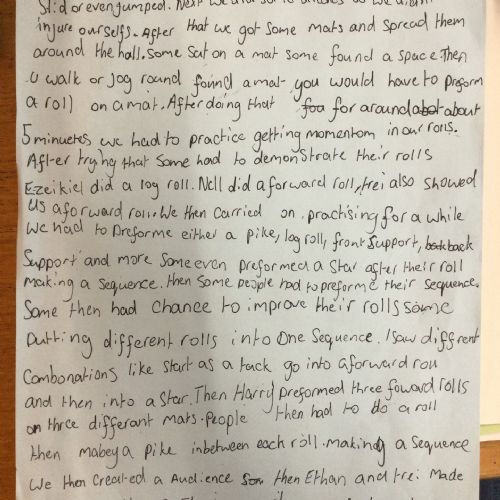 slid or even jumped. Next we did some
injure ourselfs. After that we got some mats and spread them
around the hall. Some sat on a mat some found a space. Then
U walk or jog round found a mat- you would have to preform
a roll on a mat. After doing that foo for around abot about
5 minuetes we had to practice getting momentom in our rolls.
After trying that some had to demonstrate their rolls
Ezeikiel did a log roll. Nell did a forward roll, trei also showed
us a forward roll. We then carried on practising for a while
We had to preforme either a pike, log roll, front support, back
support and more some even preformed a star after their roll
making a sequence. then some people had to preforme their sequence.
Some then had chance to improve their rolls some
putting different rolls into one sequence. I saw diffrent
Combonations like start as a tuck go into a forward roll
and then into a star. Then Harry preformed three foward rolls
on three differant mats. People then had to do a roll
then mabey a pike inbetween each roll. making a sequence
We then created a Audience then Ethan and trei made